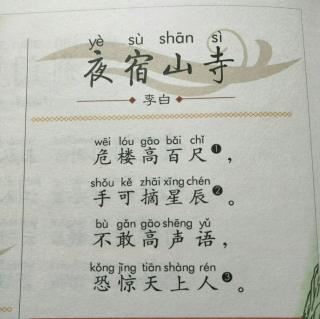 yè sù shān sì
夜宿山寺
李白
wēi lóu gāo bǎi chǐ
危楼高百尺❶，
shǒu kě zhāi xīng chén
手可摘星辰❷。
bù gǎn gāo shēng yǔ
不敢高声语，
kǒng jīng tiān shàng rén
恐惊天上人❸。